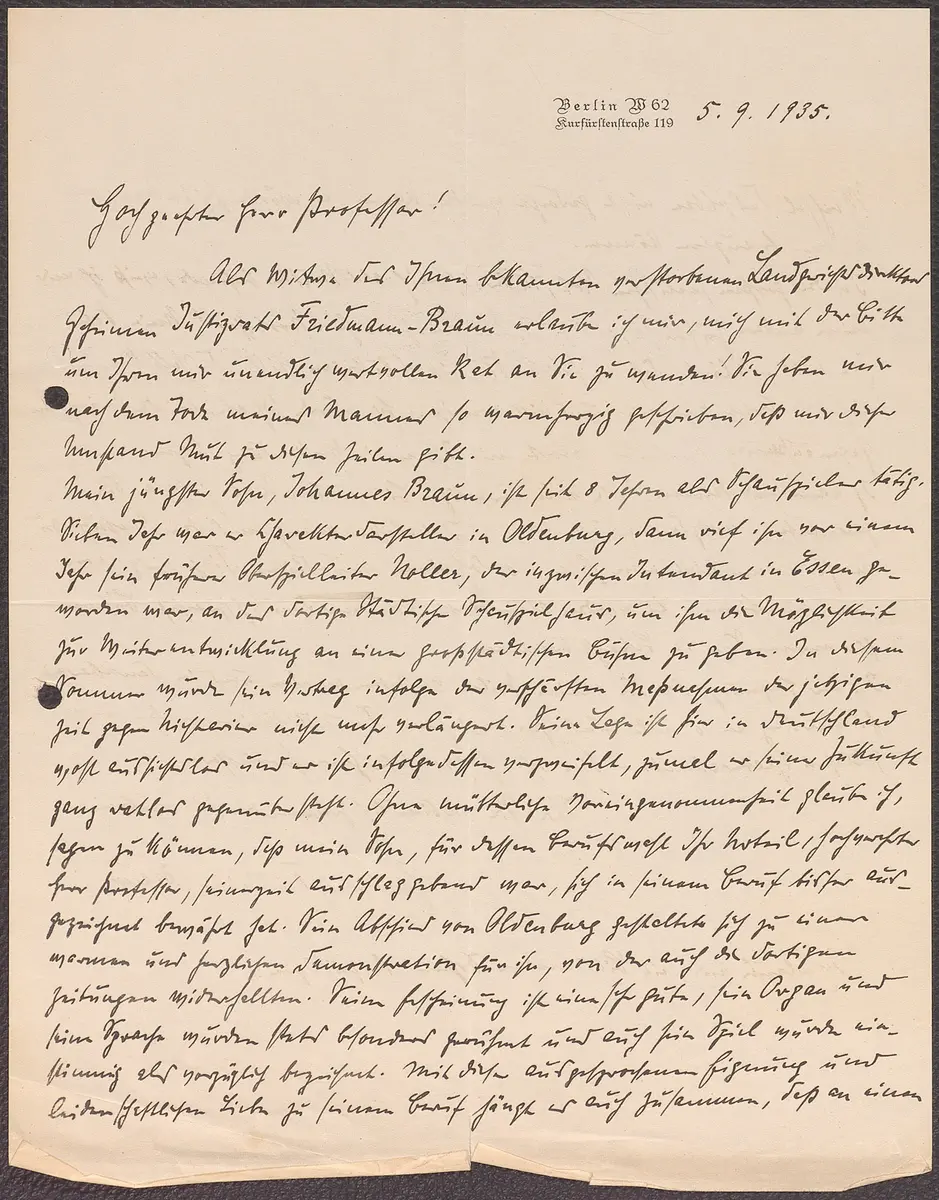 Berlin W 62
Kurfürstenstraße 119
5. 9. 1935.
Hochgeehrter Herr Professor!
Als Witwe des Ihnen bekannten verstorbenen Landgerichtsdirektors
Geheimen Justizrats Friedmann-Braun erlaube ich mir, mich mit der Bitte
um Ihren mir unendlich wertvollen Rat an Sie zu wenden! Sie haben mir
nach dem Tode meines Mannes so warmherzig geschrieben, daß mir dieser
Umstand Mut zu diesen Zeilen gibt.
Mein jüngster Sohn, Johannes Braun, ist seit 8 Jahren als Schauspieler tätig.
Sieben Jahr war er Charakterdarsteller in Oldenburg, dann rief ihn vor einem
Jahr sein früherer Oberspielleiter Noller, der inzwischen Intendant in Essen ge-
worden war, an das dortige Städtische Schauspielhaus, um ihm die Möglichkeit
zur Weiterentwicklung an einer großstädtischen Bühne zu geben. In diesem
Sommer wurde sein Vertrag infolge der verschärften Maßnahmen der jetzigen
Zeit gegen Nichtarier nicht mehr verlängert. Seine Lage ist hier in Deutschland
wohl aussichtslos und er ist infolgedessen verzweifelt, zumal er seiner Zukunft
ganz ratlos gegenüber steht. Ohne mütterliche Voreingenommenheit glaube ich,
sagen zu können, daß mein Sohn, für dessen Berufswahl Ihr Urteil, hochverehrter
Herr Professor, seinerzeit ausschlaggebend war, sich in seinem Beruf bisher aus-
gezeichnet bewährt hat. Sein Abschied von Oldenburg gestaltete sich zu einer
warmen und herzlichen Demonstration für ihn, von der auch die dortigen
Zeitungen widerhallten. Seine Erscheinung ist eine sehr gute, sein Organ und
seine Sprache wurden stets besonders gerühmt und auch sein Spiel wurde ein-
stimmig als vorzüglich bezeichnet. Mit dieser ausgesprochenen Eignung und
leidenschaftlichen Liebe zu seinem Beruf hängt es auch zusammen, daß an einen